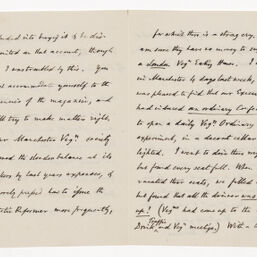 into buying it & be dis-
on that account, though
I was troubled by this. You
accommodate yourself to the
of the magazine, and
try to make matters right.
Manchester Veg⁠n society
the slender balance at its
by last years expenses, &
prefer has to ofone the
Reformer more frequently,
for which there is a strong cry.
am sure they have no money to
a London Veg⁠n Eating House. I
in Manchester by days last week,
was pleased to find that our
had induced an ordinary
to open a daily Veg⁠n Ordinary
experiment, in a decent cellar
lighted. I went to dine there
but found every seat full. When
vacated their seats, we filled
but found that all the dinner was
up! (Veg⁠ns had come up to the
Traffic
Drink and Veg⁠n meetings.) With a